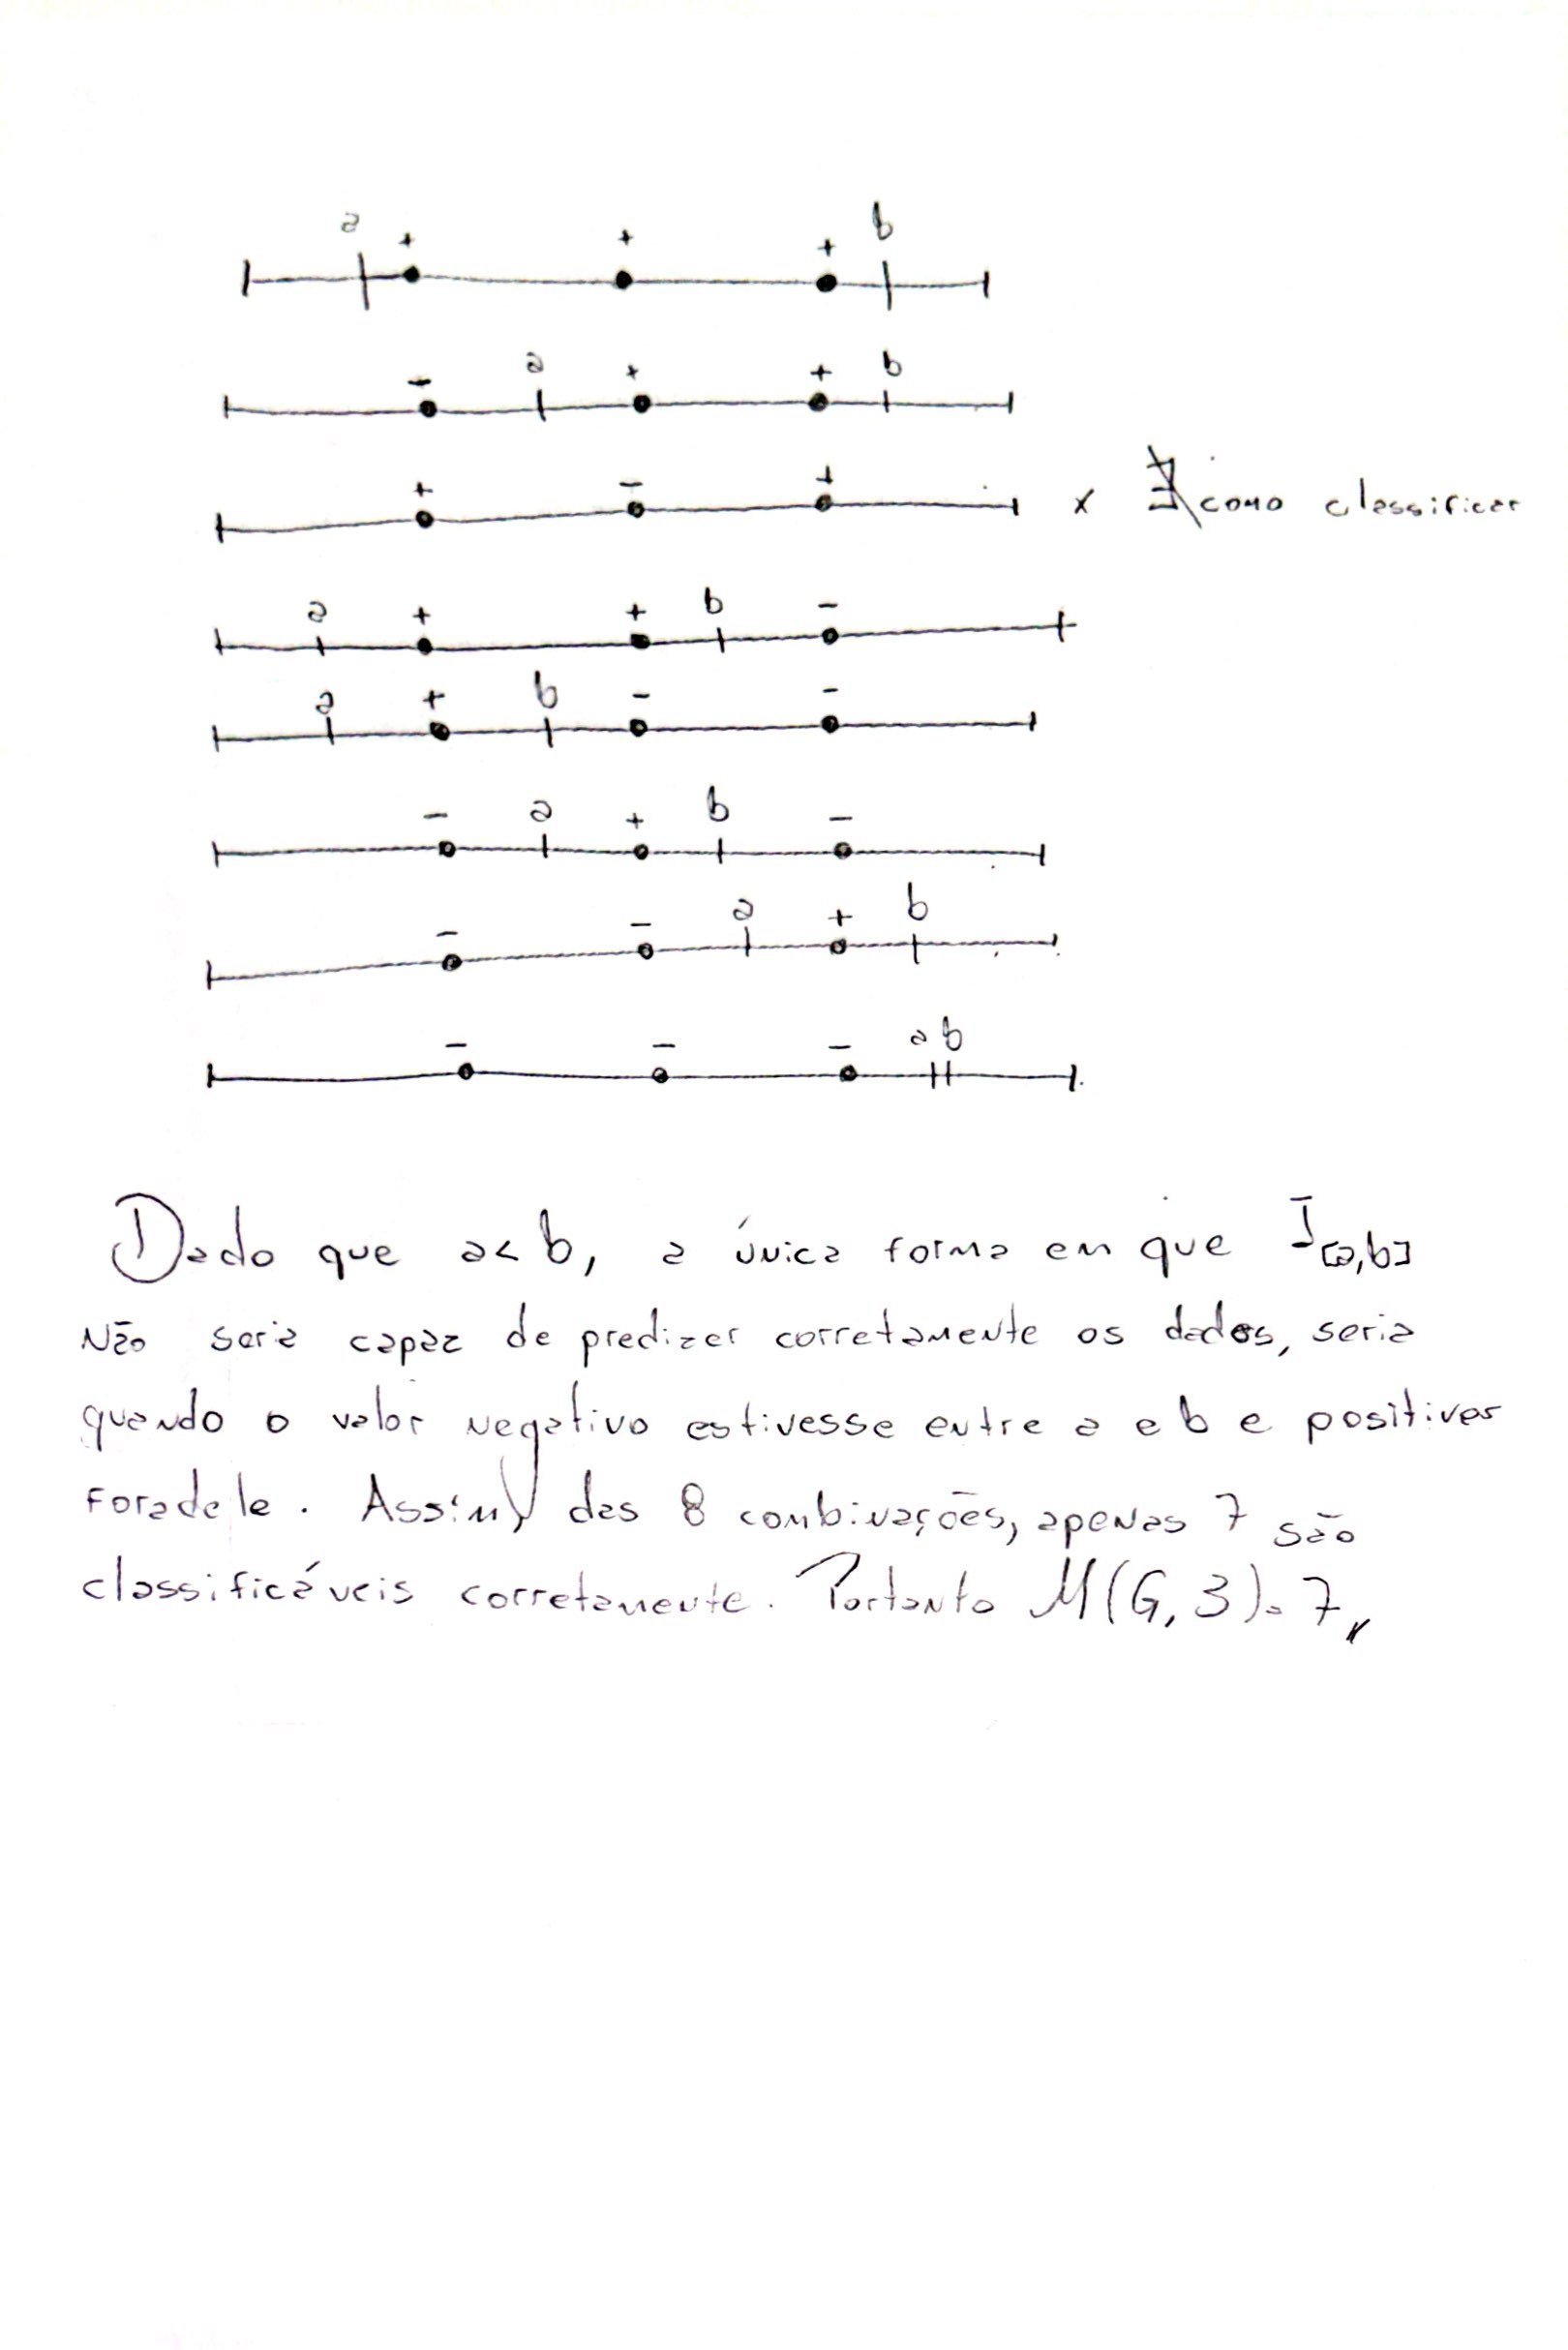 a + + + b
- a + + b
+ - + x ∄ como classificar
a + + b -
a + b - -
- a + b -
- - a + b
- - - a b
Dado que a< b, a única forma em que I[a,b]
Não seria capaz de predizer corretamente os dados, seria
quando o valor negativo estivesse entre a e b e positivos
fora dele. Assim, das 8 combinações, apenas 7 são
classificáveis corretamente. Portanto M(G, 3) = 7,,